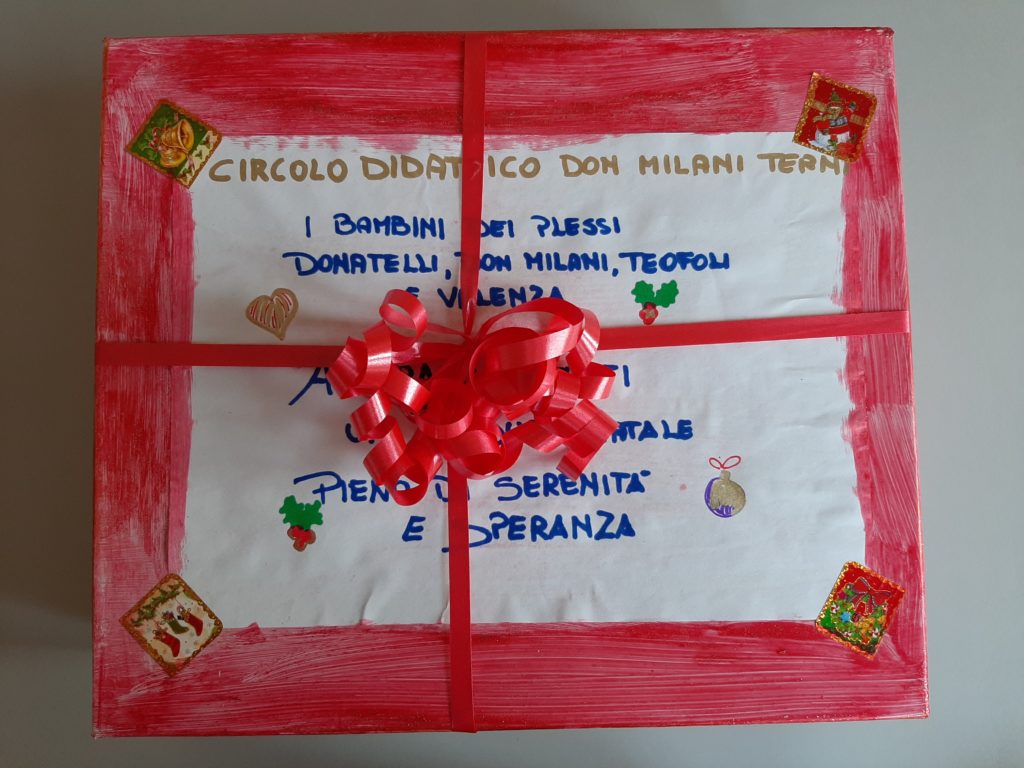 CIRCOLO DIDATTICO DON MILANI TERNI
I BAMBINI DEI PLESSI
DONATELLI, DON MILANI, TEOFOLI
E VALENZA
PIENO DI SERENITA'
E SPERANZA